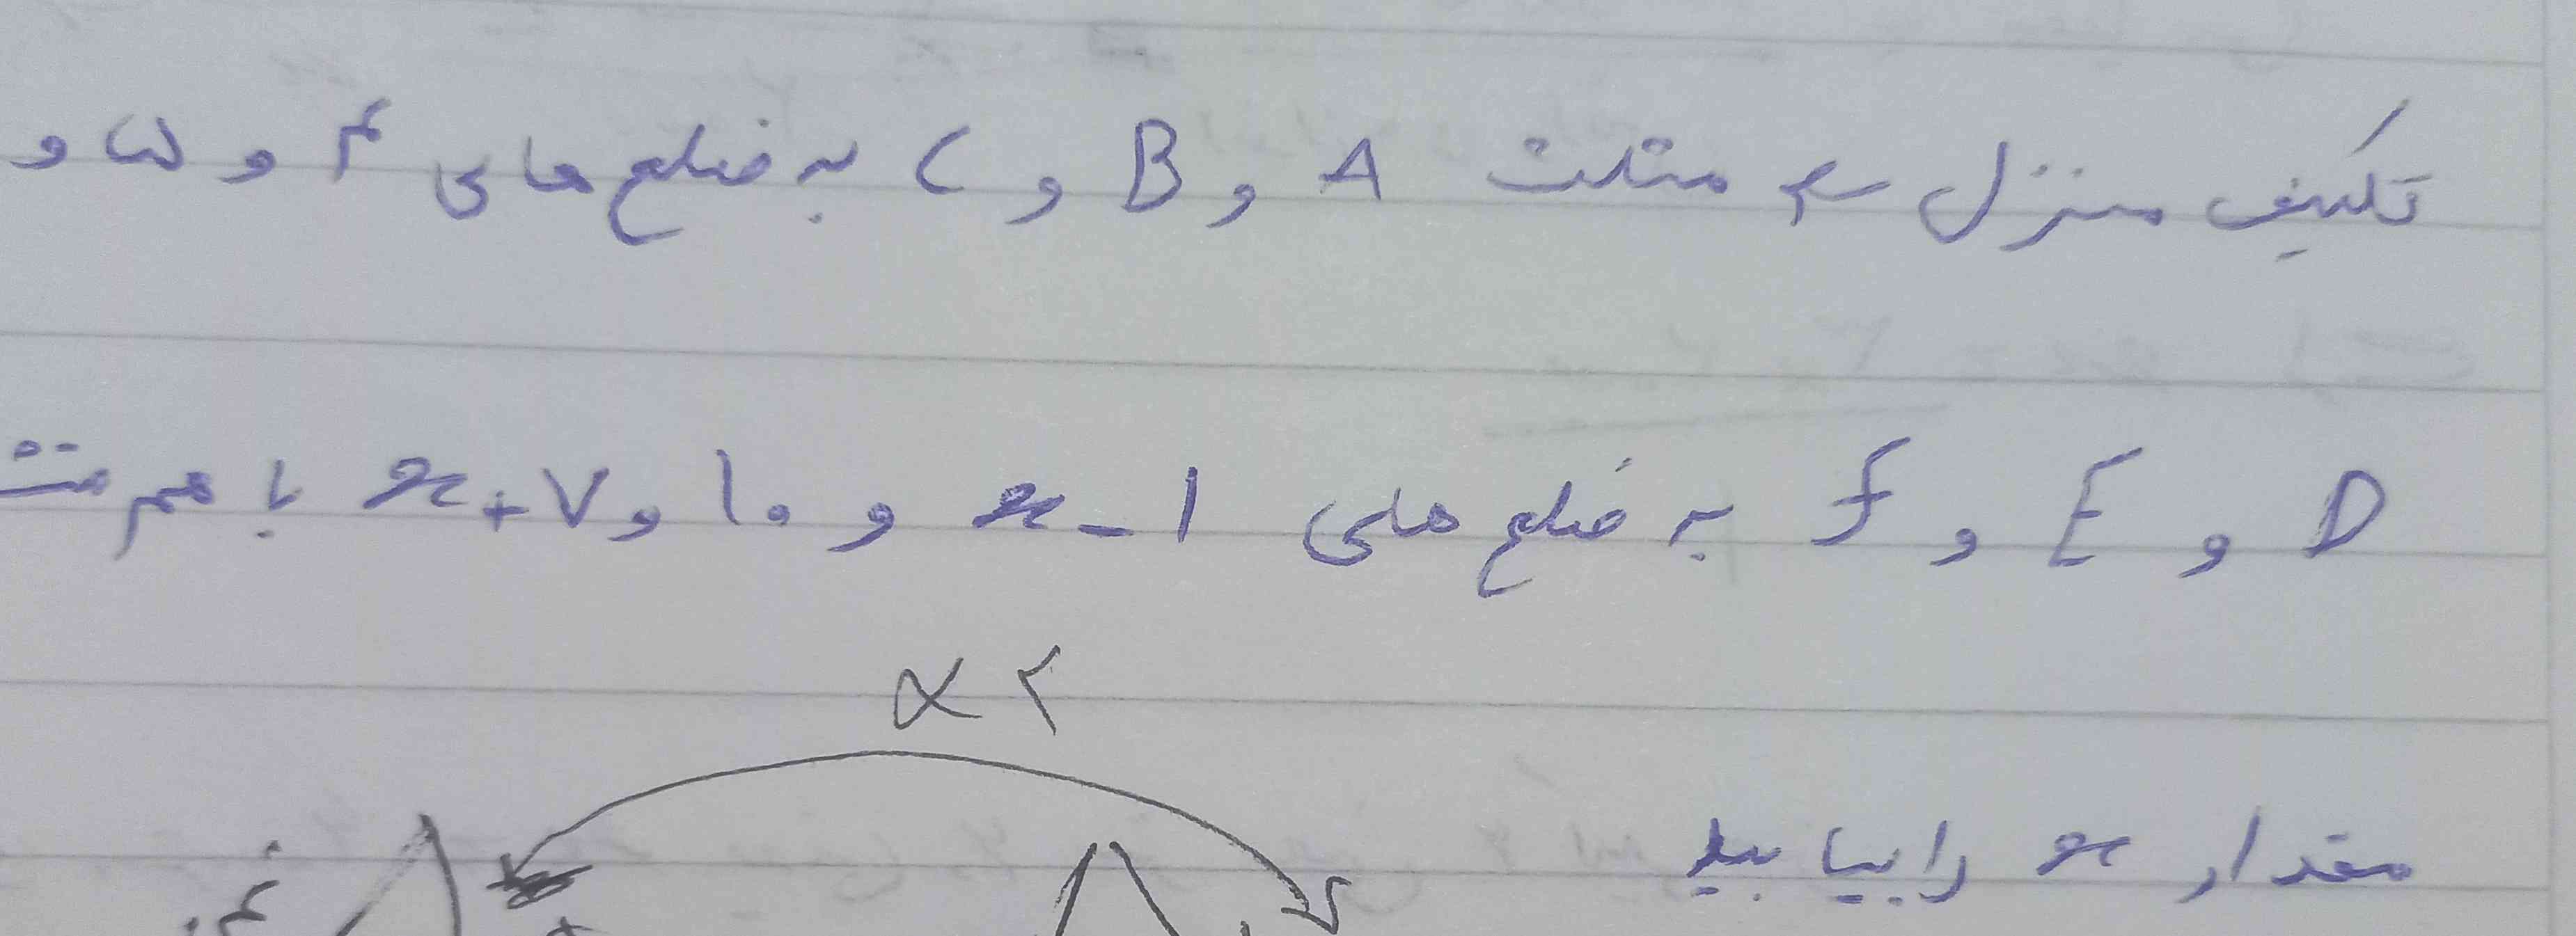 تکلیف منزل سه مثلث A و B و C به ضلع های ۴ و ۵ و
D و E و f به ضلع های x-1 و ۱۰ و x+۷ با هم متش
∝ ۲
مقدار x را بیابید
۴